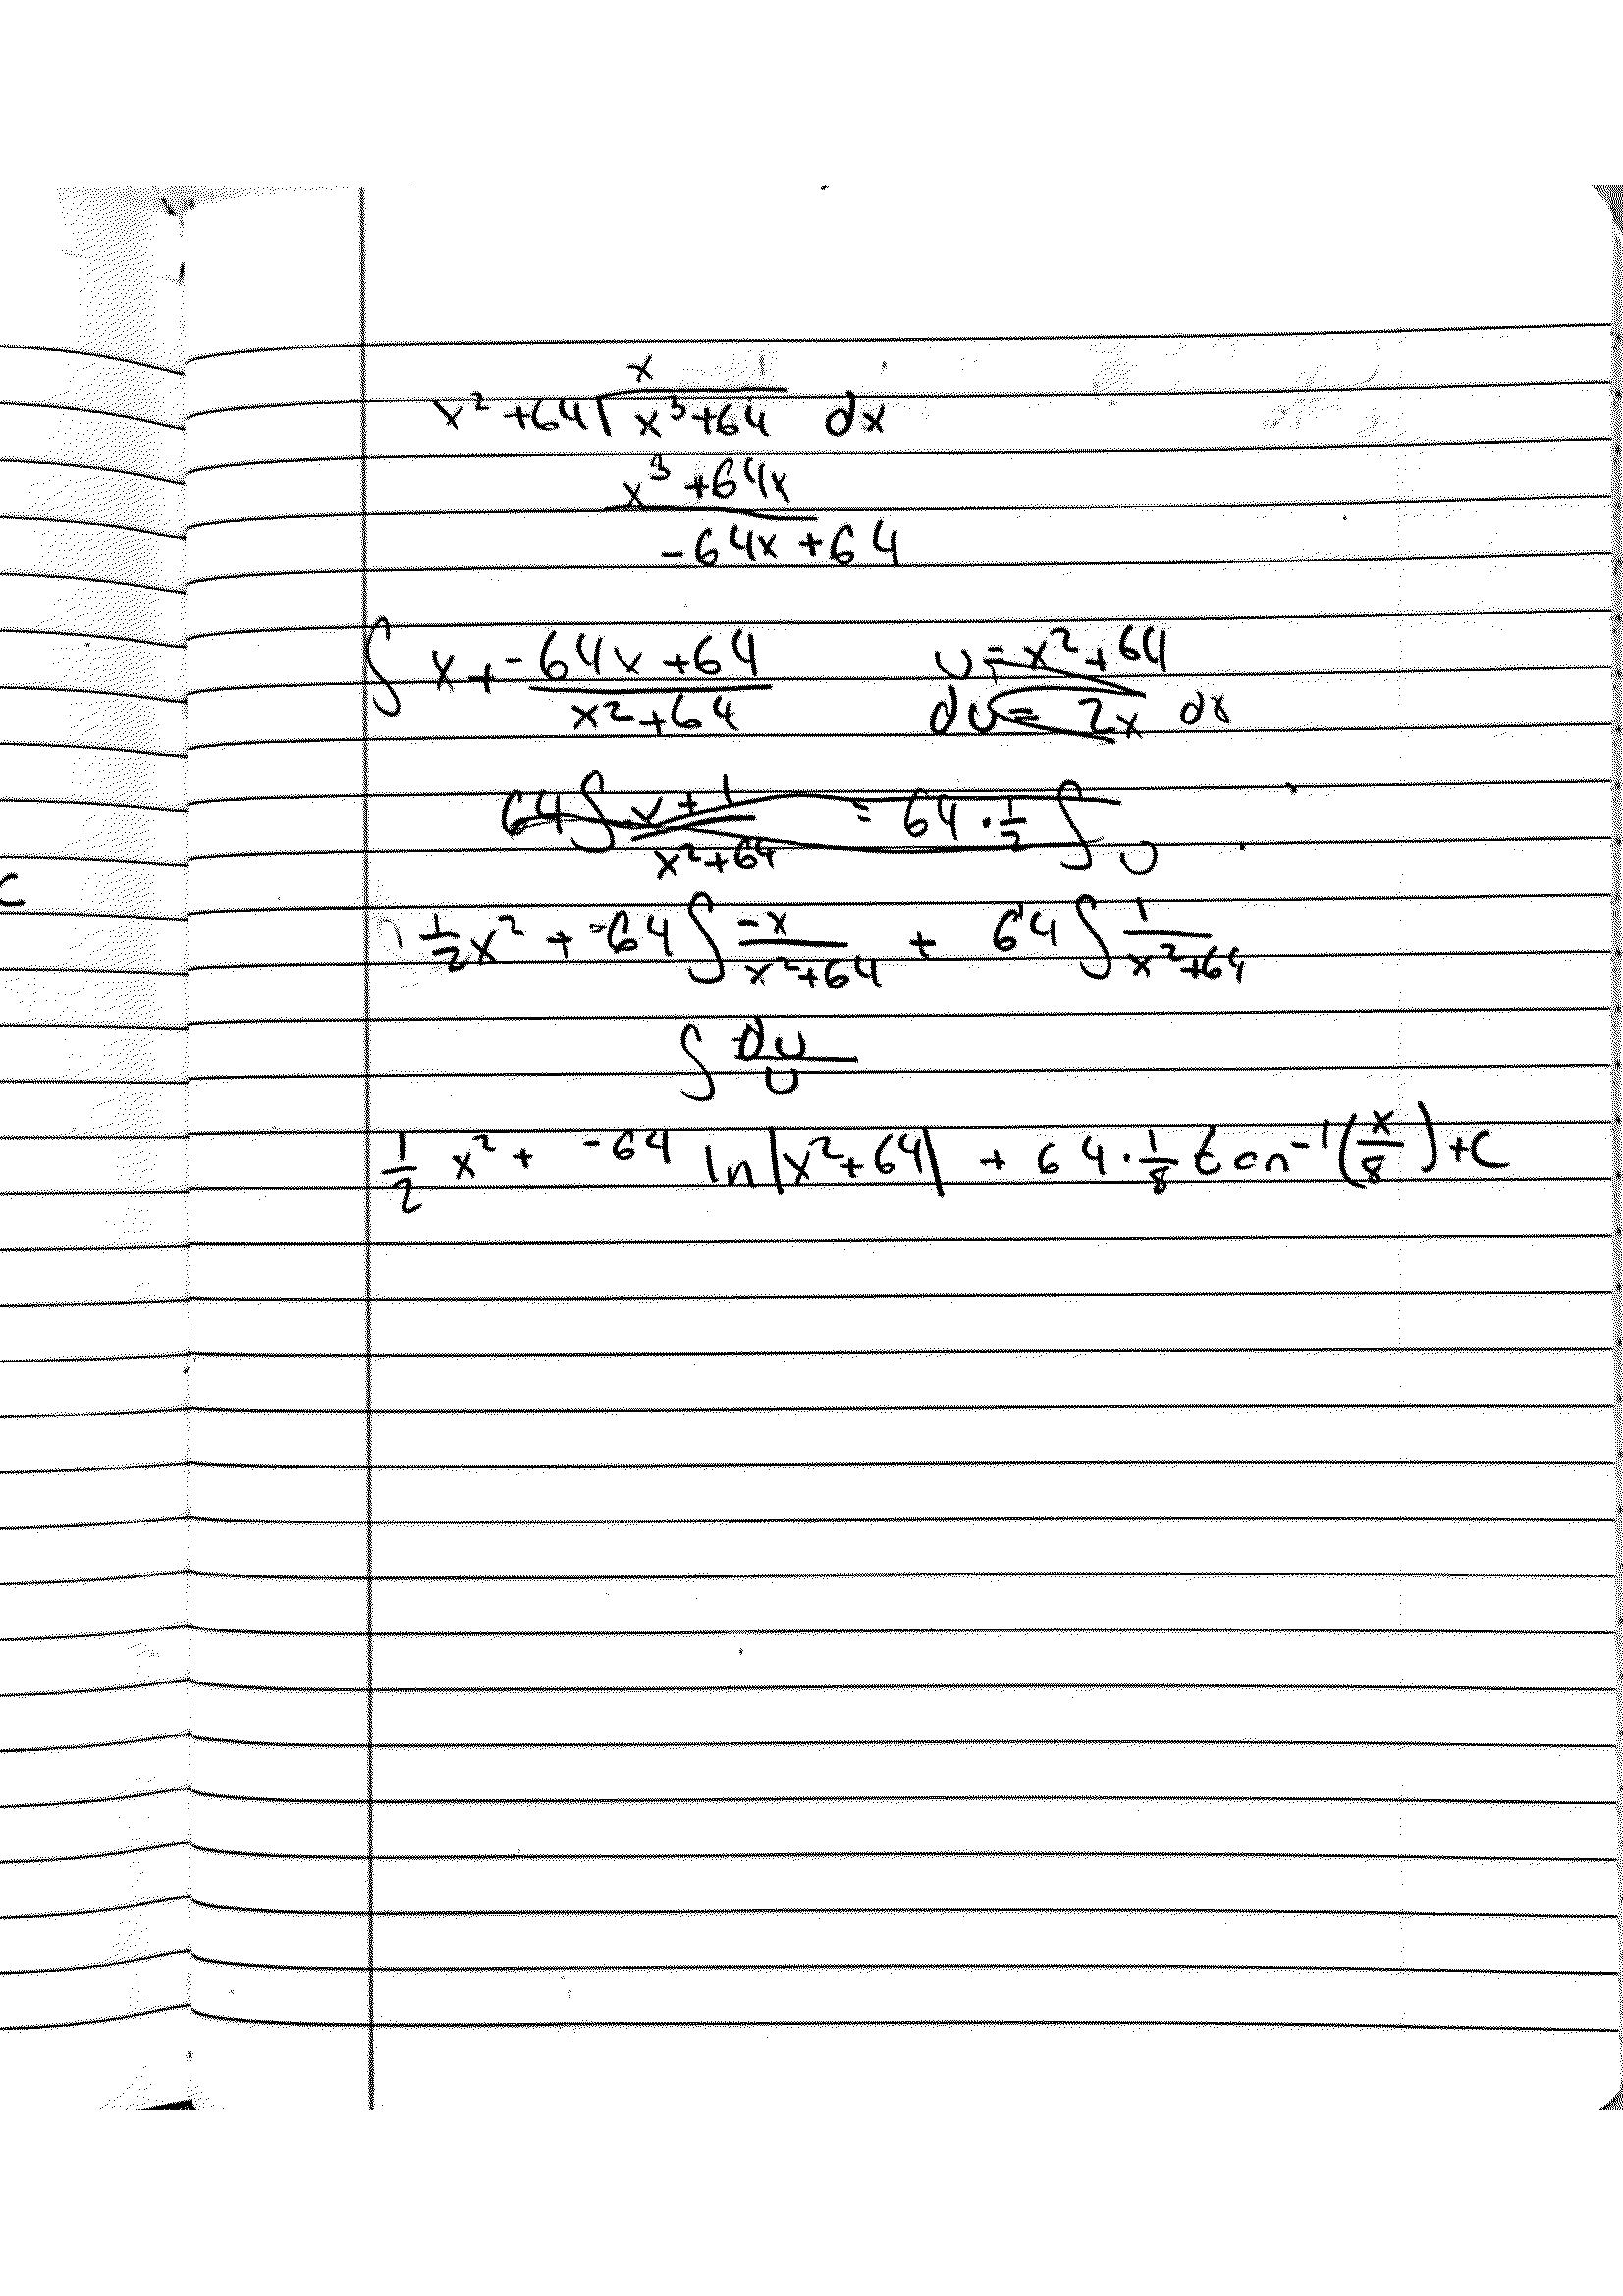 x
x² + 64 | x³ + 64 dx
x³ + 64x
-64x + 64
∫ x + (-64x + 64)/(x² + 64) u = x² + 64
du = 2x dx
64 ∫ (x + 1)/(x² + 64) = 64 · 1/2 ∫ u
c
1/2 x² + -64 ∫ -x/(x² + 64) + 64 ∫ 1/(x² + 64)
∫ du/u
1/2 x² + -64 ln|x² + 64| + 64 · 1/8 tan⁻¹(x/8) + C